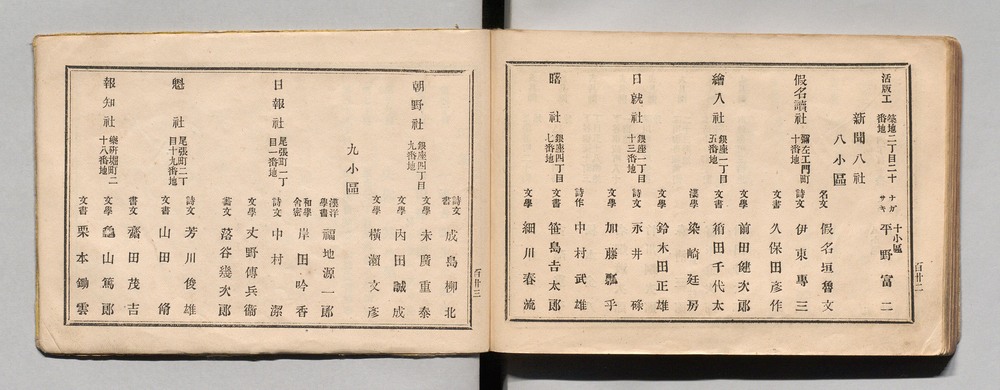 活版工 築地二丁目二十番地 ナガサキ 十小區 平野富二
新聞八社
八小區
假名讀社 彌左エ門町十番地 名文 假名垣魯文
詩文 伊東專三
文書 久保田彦作
繪入社 銀座一丁目五番地 文學 前田健次郎
文書 箱田千代太
漢學 染崎延房
日就社 銀座一丁目十三番地 文學 鈴木田正雄
詩文 永井碌
文學 加藤瓢乎
曙社 銀座四丁目七番地 詩作 中村武雄
文書 笹島吉太郎
文學 細川春流
百卅二
朝野社 銀座四丁目九番地 詩文書 成島柳北
文學 末廣重恭
文學 内田誠成
文學 横瀬文彦
九小區
日報社 尾張町一丁目一番地 漢洋學書 福地源一郎
和學舍密 岸田吟香
詩文 中村潔
文學 丈野傳兵衞
書文 落谷幾次郎
魁社 尾張町二丁目十九番地 詩文 芳川俊雄
文書 山田脩
報知社 藥研堀町二十八番地 書文 齋田茂吉
文學 亀山篤郎
文書 栗本鋤雲
百卅三